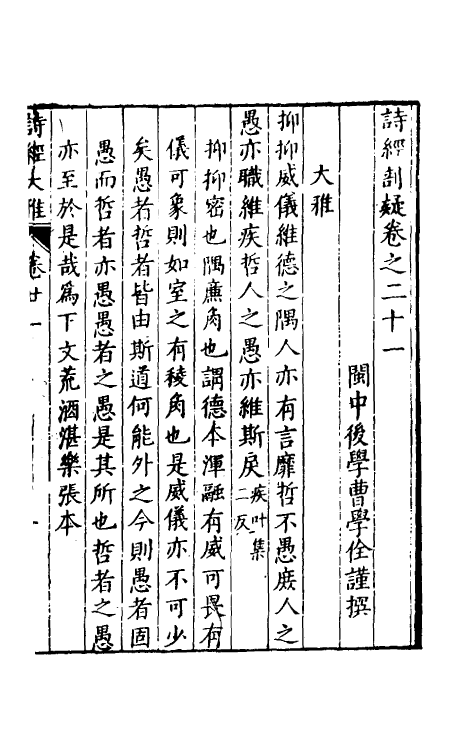 詩經剖疑卷之二十一
閩中後學曹學佺謹撰
大雅
抑抑威儀維德之隅人亦有言靡哲不愚庶人之
愚亦職維疾哲人之愚亦維斯戾疾叶集二反
抑抑密也隅廉角也謂德本渾融有威可畏有
儀可象則如室之有稜角也是威儀亦不可少
矣愚者哲者皆由斯道何能外之今則愚者固
愚而哲者亦愚愚者之愚是其所也哲者之愚
亦至於是哉爲下文荒酒湛樂張本
詩經大雅 卷廿一